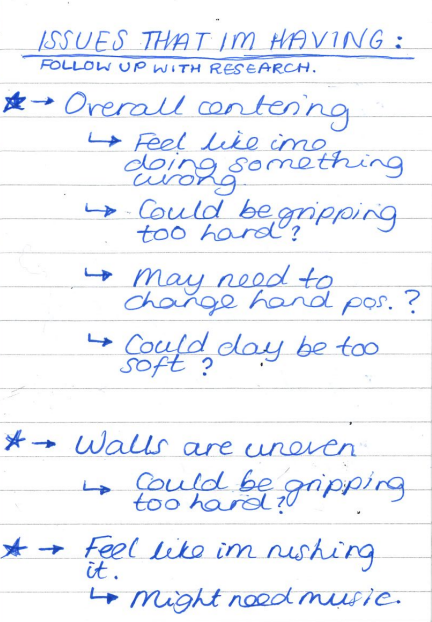 ISSUES THAT IM HAVING:
FOLLOW UP WITH RESEARCH.
★ → Overall centering
↳ Feel like imo
doing something
wrong
↳ Could be gripping
too hard?
↳ May need to
change hand pos. ?
↳ Could clay be too
soft ?
★ → Walls are uneven
↳ Could be gripping
too hard?
★ → Feel like im rushing
it.
↳ Might need music.